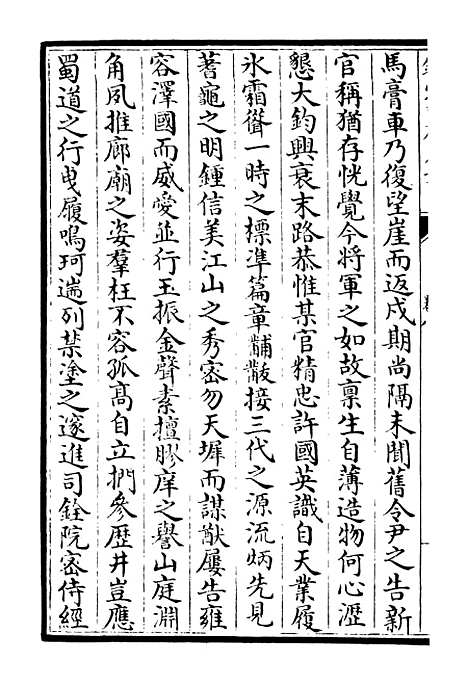 馬膏車乃復望崖而返戍期尚隔未聞舊令尹之告新
官稱猶存恍覺今將軍之如故禀生自薄造物何心瀝
懇大鈞興衰末路恭惟某官精忠許國英識自天業履
氷霜聳一時之標凖篇章黼黻接三代之源流炳先見
蓍龜之明鍾信美江山之秀密勿天墀而謀猷屢告雍
容澤國而威愛並行玉振金聲素擅膠庠之譽山庭淵
角夙推廊廟之姿羣枉不容孤髙自立捫參歴井豈應
蜀道之行曵履鳴珂耑列禁塗之邃進司銓院密侍經